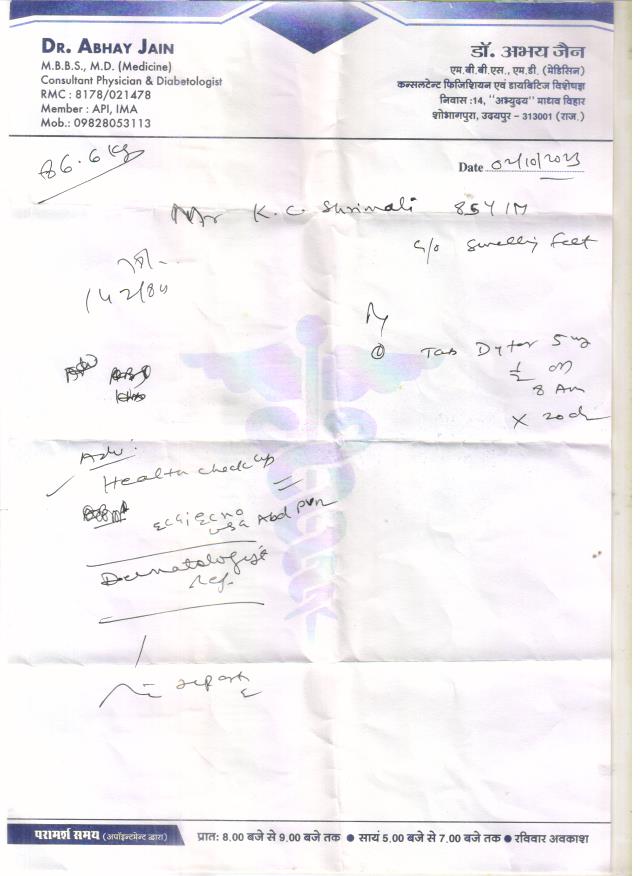 DR. ABHAY JAIN
M.B.B.S., M.D. (Medicine)
Consultant Physician & Diabetologist
RMC : 8178/021478
Member : API, IMA
Mob.: 09828053113
डॉ. अभय जैन
एम.बी.बी.एस., एम.डी. (मेडिसिन)
कन्सलटेन्ट फिजिशियन एवं डायबिटिज विशेषज्ञ
निवास :14, "अभ्युदय" माधव विहार
शोभागपुरा, उदयपुर - 313001 (राज.)
86.6 kg
Date 02/10/2023
Mr K. C. Shrimali 85Y/M
c/o Swelling feet
142/80
Rx
① Tab Dytor 5 mg
1/2 OD
8 Am
X 20 d
Adv:
Health check up
USG Abd
Dermatologist
ref.
report
परामर्श समय (अपॉइन्टमेन्ट द्वारा)
प्रात: 8.00 बजे से 9.00 बजे तक ● सायं 5.00 बजे से 7.00 बजे तक ● रविवार अवकाश